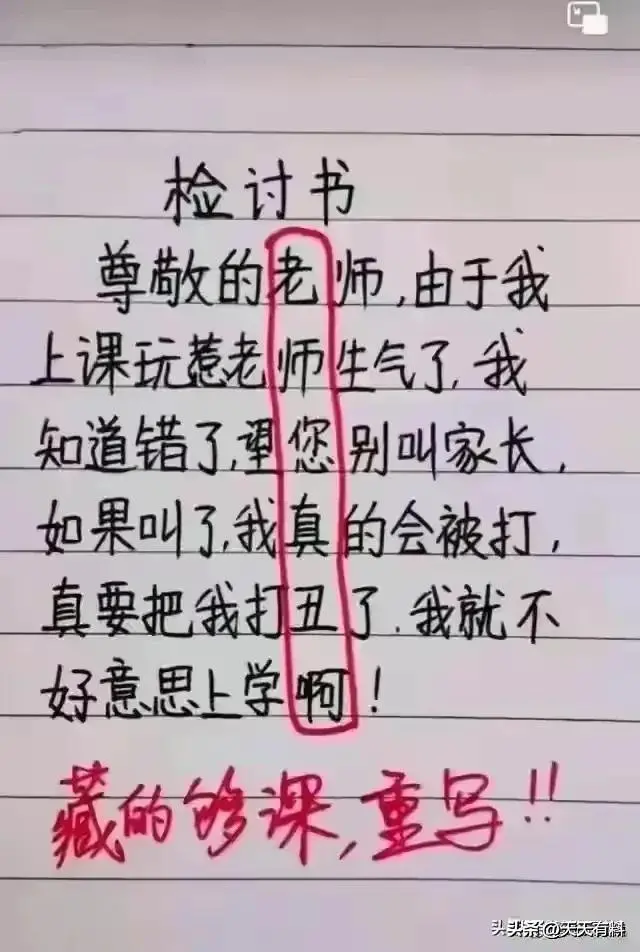 检讨书
尊敬的老师,由于我
上课玩惹老师生气了,我
知道错了,望您别叫家长,
如果叫了,我真的会被打,
真要把我打丑了.我就不
好意思上学啊!
藏的够深,重写!!
头头条@天天有料